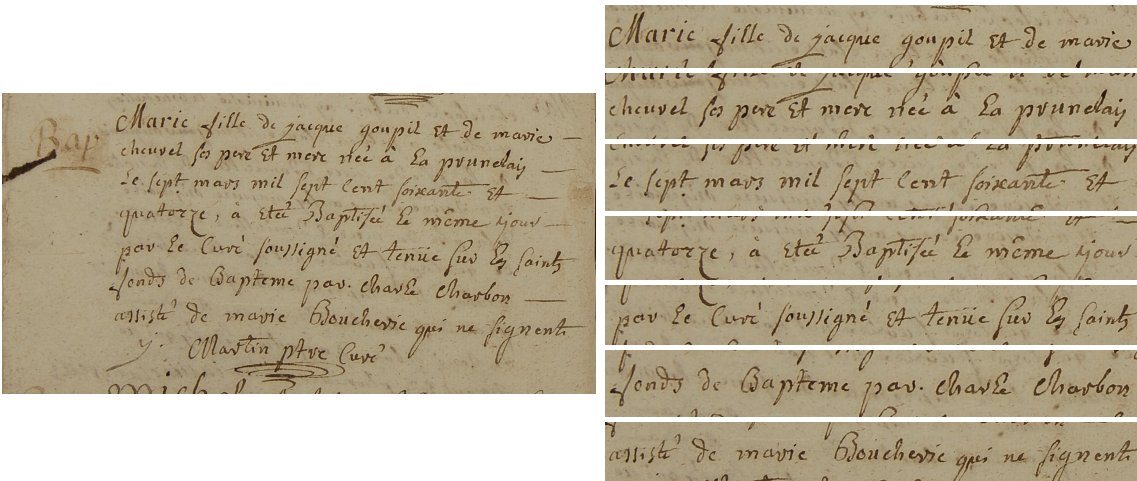 Bap
Marie fille de jacque goupil et de marie
cheurel ses pere et mere née à la prunelay
le sept mars mil sept cent soixante et
quatorze, à eteé Baptisée le même jour
par le Curé soussigné et tenüe sur les saints
fonds de Bapteme par. charle charbon
assisté de marie Boucherie qui ne signent
Martin ptre Curé
Marie fille de jacque goupil et de marie
cheurel ses pere et mere née à la prunelay
le sept mars mil sept cent soixante et
quatorze, à eteé Baptisée le même jour
par le Curé soussigné et tenüe sur les saints
fonds de Bapteme par. charle charbon
assisté de marie Boucherie qui ne signent